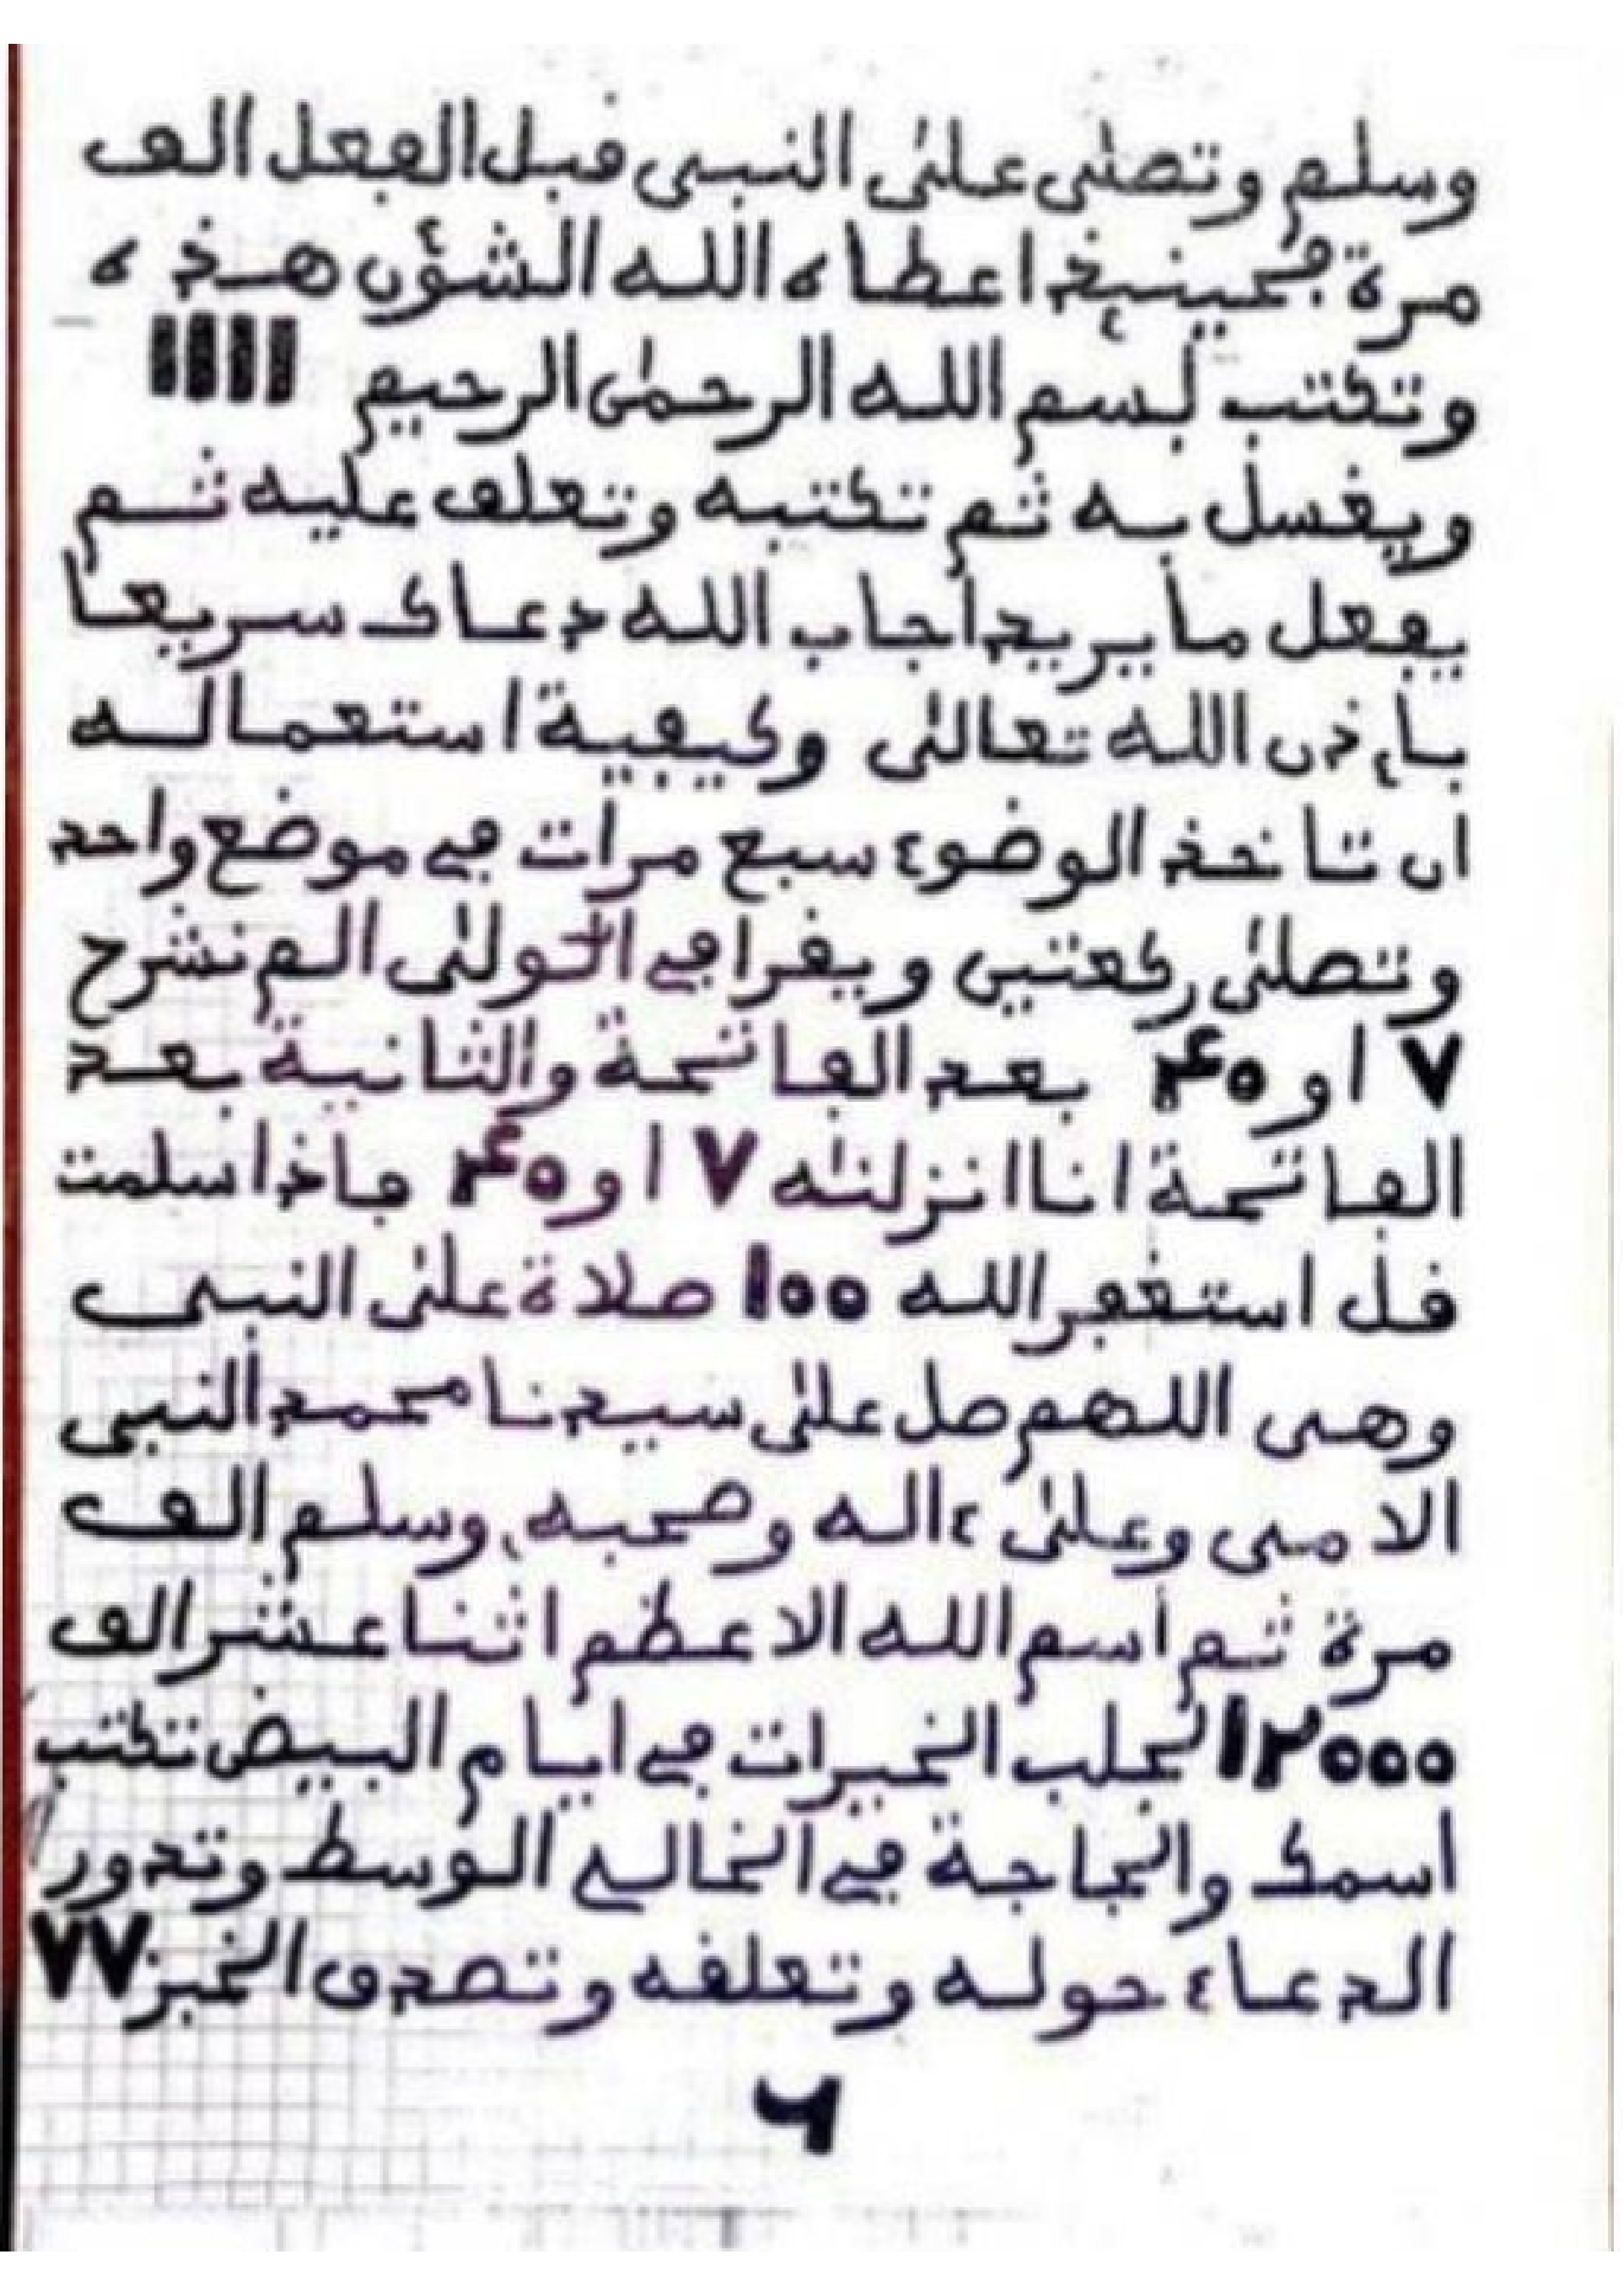 وسلم وتصلى على النبى قبل الفعل الف
مرة فحينئذ اعطاه الله الشؤن هـذه
وتكتب لبسم الله الرحمٰن الرحيم ١١١١
ويغسل به ثم تكتبه وتعلق عليه ثـم
يفعل ما يريد اجاب الله دعاك سريعا
بإذن الله تعالى وكيفية استعماله
ان تاخذ الوضوء سبع مرات في موضع واحد
وتصلى ركعتين ويقرا في الاولى الم نشرح
٧ او ٤٥ بعد الفاتحة والثانية بعد
الفاتحة انا انزلنٰه ٧ او ٤٥ فاذا سلمت
قل استغفر الله ١٥٥ صلاة على النبى
وهى اللهم صل على سيدنا محمد النبى
الامى وعلى ءاله وصحبه وسلم الف
مرة ثم اسم الله الاعظم اثنا عشر الف
١٢٥٥٥ لجلب الخيرات في ايام البيض تكتب
اسمك والحاجة في الخالى الوسط وتدور
الدعاء حوله وتعلقه وتصدق الخبز ٧٧
٦